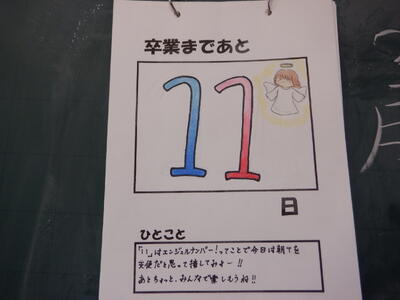 卒業まであと
11
日
ひとこと
「11」はエンジェルナンバー!ってことで今日は朝てを
天使だと思って接してみよー!!
あとちょっと、みんなで楽しもうね!!